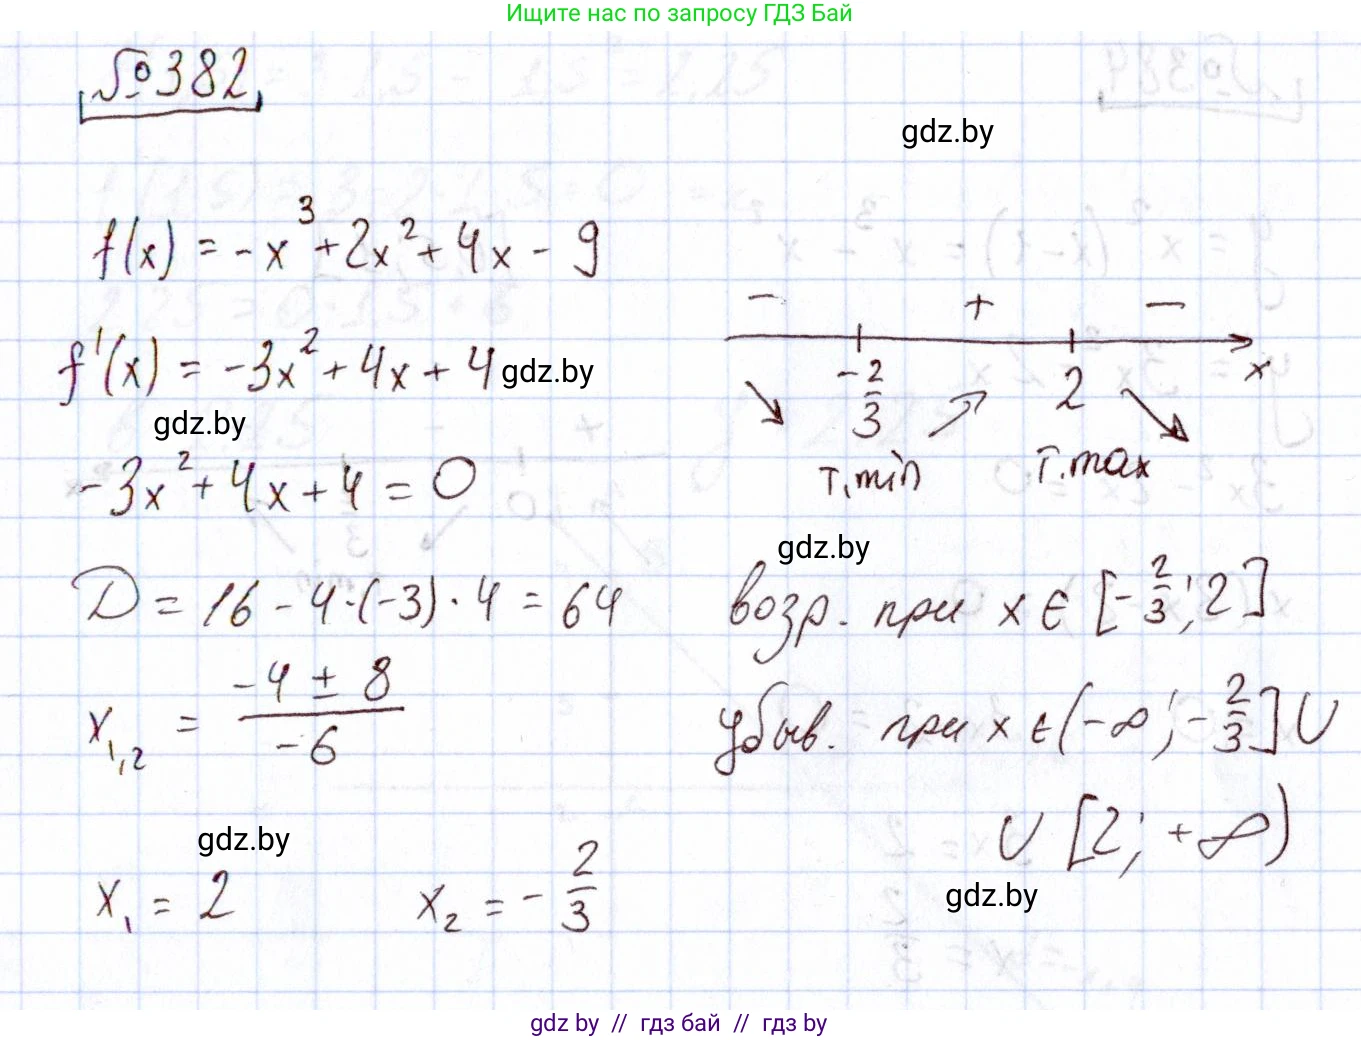 Ищите нас по запросу ГДЗ Бай
№382
gdz.by
f(x) = -x³ + 2x² + 4x - 9
f'(x) = -3x² + 4x + 4
gdz.by
gdz.by
-3x² + 4x + 4 = 0
D = 16 - 4·(-3)·4 = 64
x₁,₂ = (-4 ± 8)/(-6)
gdz.by
x₁ = 2    x₂ = -2/3
- + -
-2/3  2  x
т.min  т.max
gdz.by
возр. при x ∈ [-2/3; 2]
убыв. при x ∈ (-∞; -2/3] ∪
∪ [2; +∞)
gdz.by
gdz by // гдз бай // гдз by